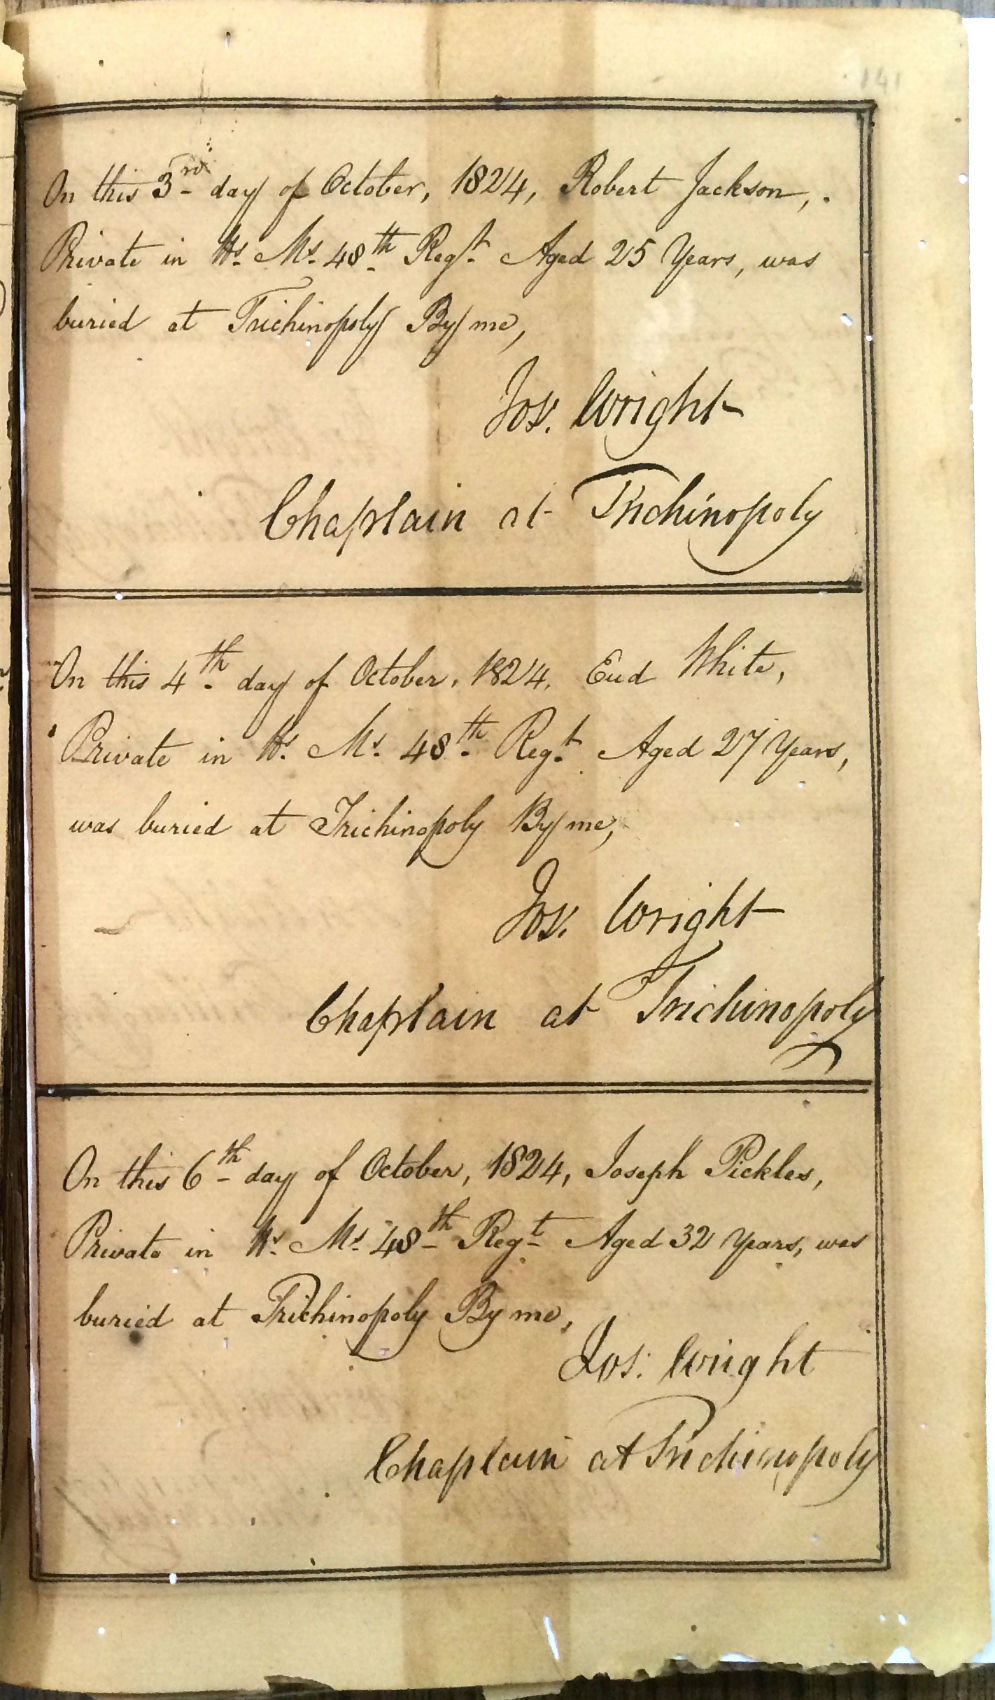 141
On this 3rd day of October, 1824, Robert Jackson,
Private in Hs. Ms. 48th Regt. Aged 25 Years, was
buried at Trichinopoly By me,
Jos. Wright
Chaplain at Trichinopoly
On this 4th day of October, 1824, Eud White,
Private in Hs. Ms. 48th Regt. Aged 27 Years,
was buried at Trichinopoly By me,
Jos. Wright
Chaplain at Trichinopoly
On this 6th day of October, 1824, Joseph Pickles,
Private in Hs. Ms. 48th Regt. Aged 32 Years, was
buried at Trichinopoly By me,
Jos. Wright
Chaplain at Trichinopoly